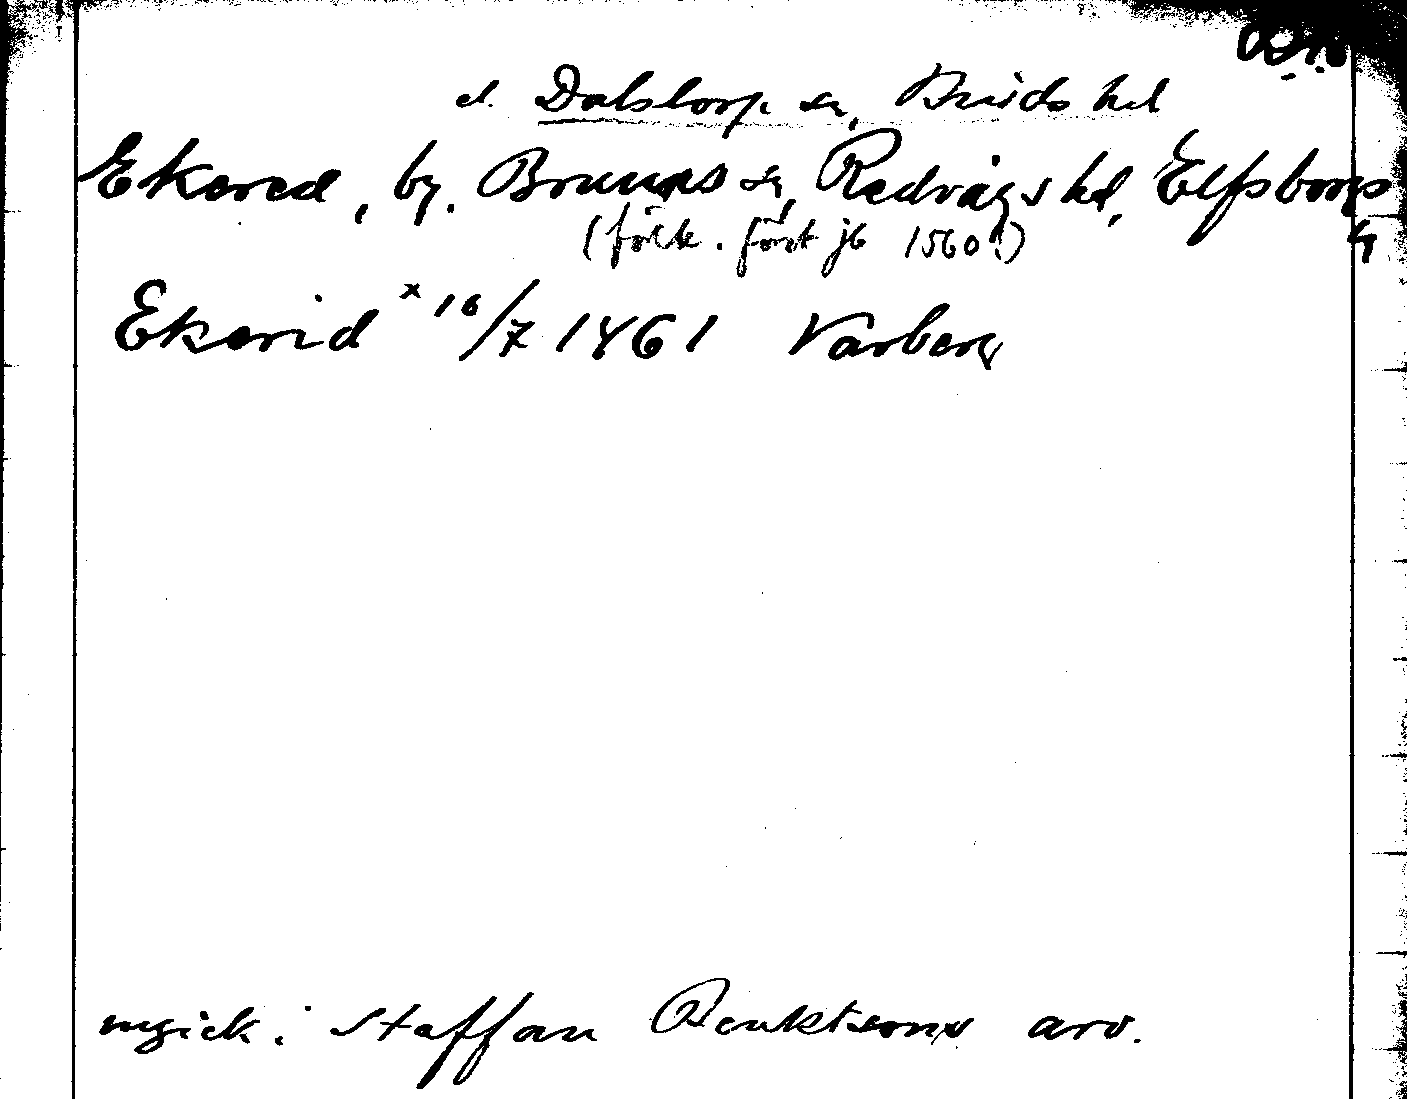 el. Dalstorp sn, Kinds hd
Ekered, by. Brunns sn, Redvägs hd, Elfsborgs
(fölk. först jb 1560!)
Ekerid x 16/7 1461 Varberg
ingick i Staffan Benktsons arv.